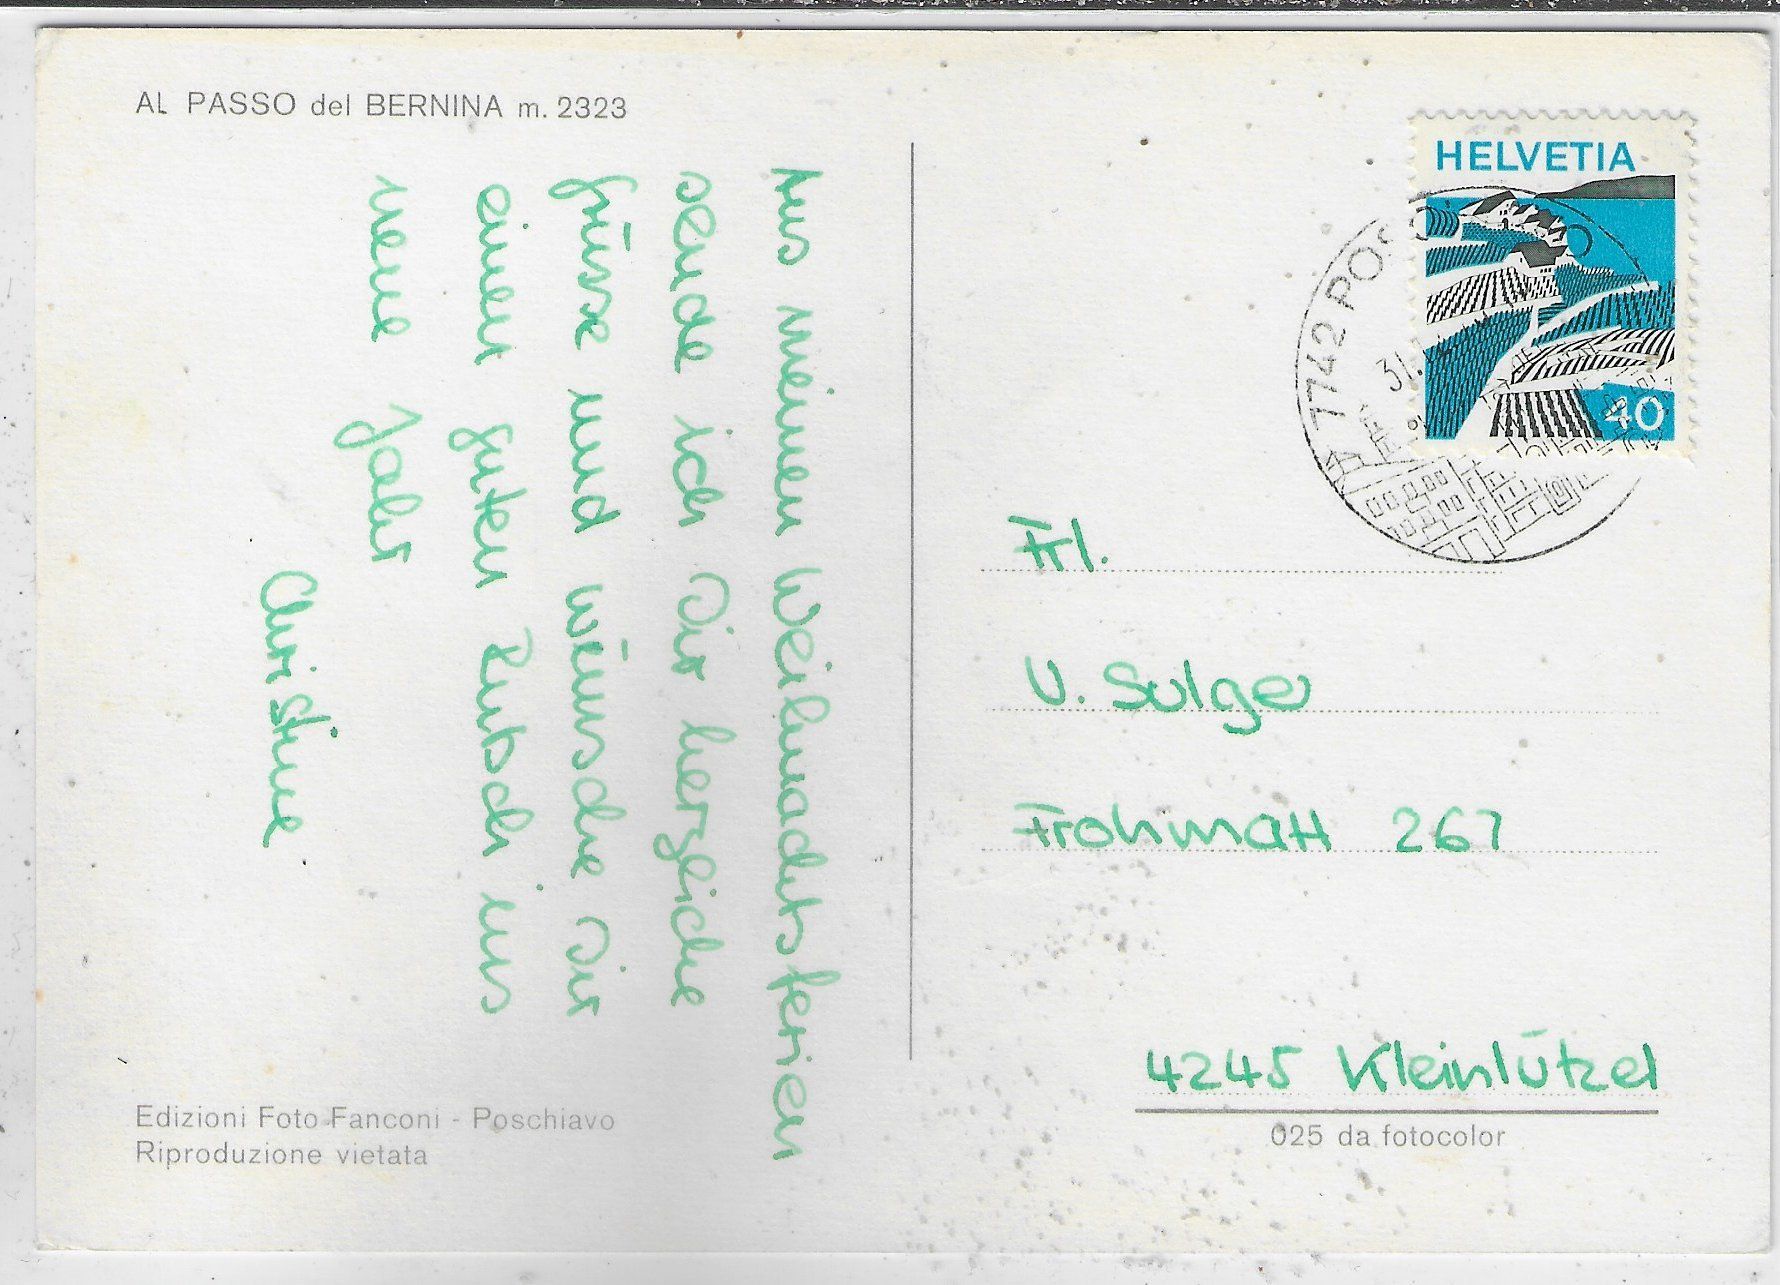 AL PASSO del BERNINA m. 2323
Aus meinen Weihnachtsferien
sende ich Dir herzliche
Grüsse und wünsche Dir
einen guten Rutsch ins
neue Jahr
Christine
Edizioni Foto Fanconi - Poschiavo
Riproduzione vietata
HELVETIA
40
7742 POSC
31.
Frl.
U. Sulger
Frohmatt 267
4245 Kleinlützel
025 da fotocolor